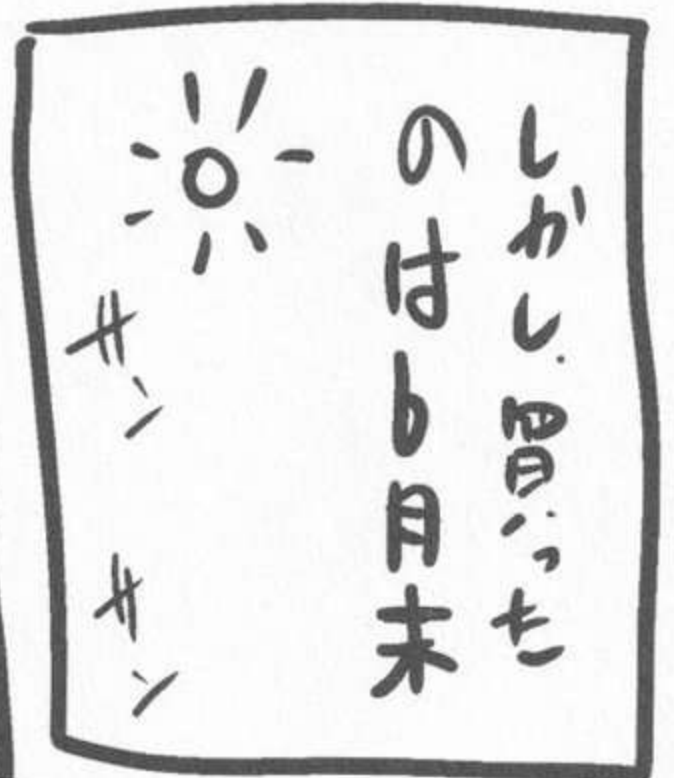 しかし、買った
のは6月末
サン
サン